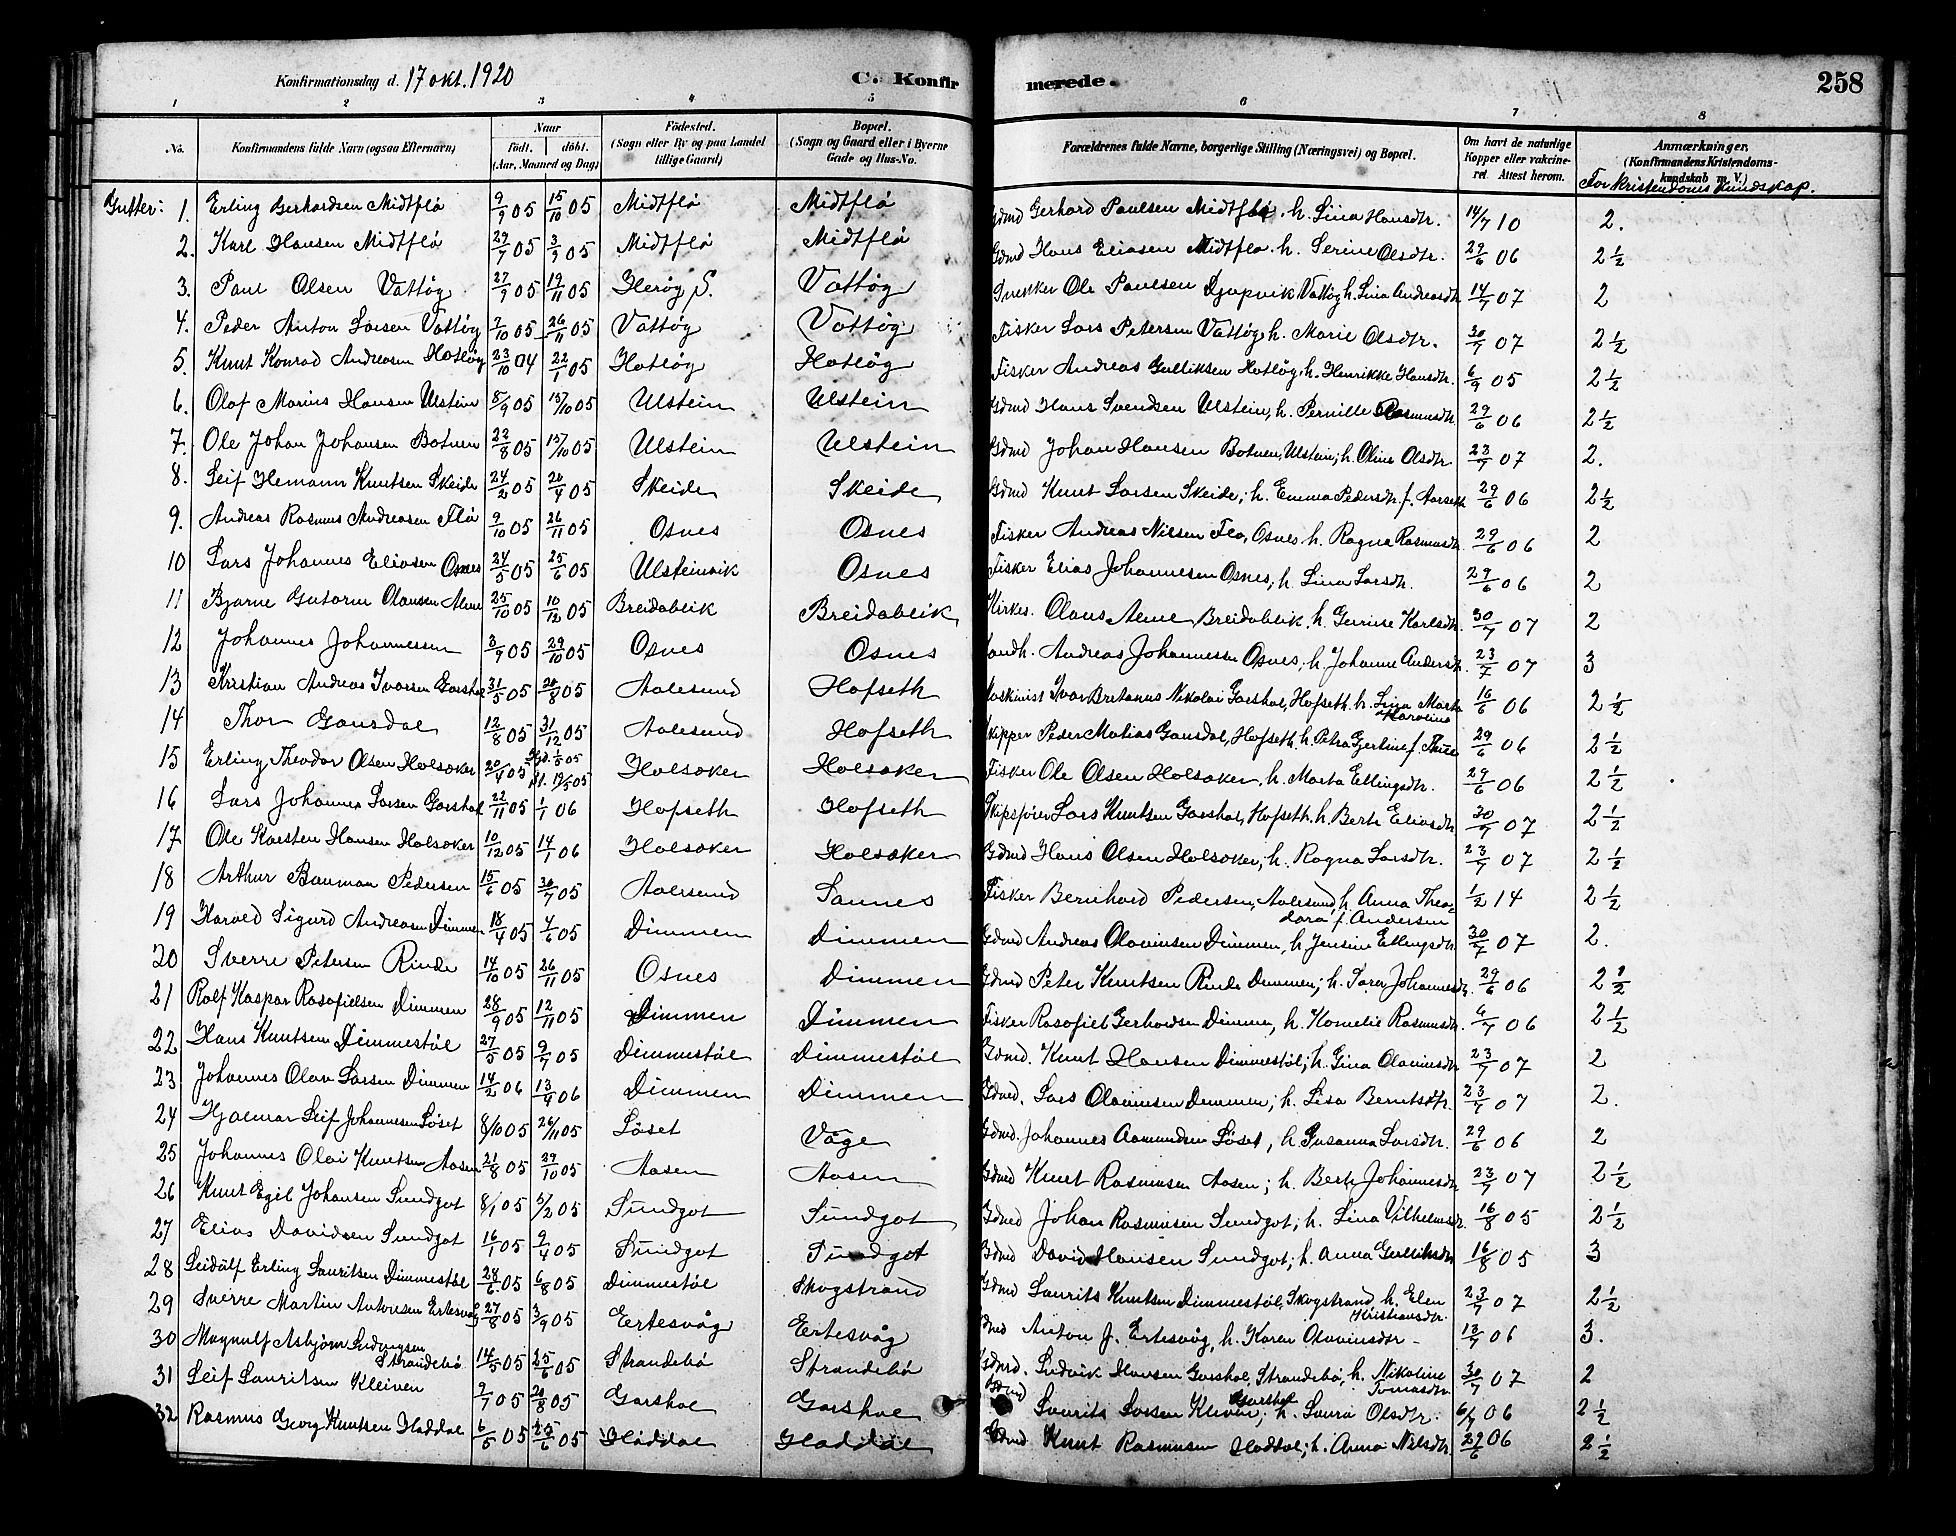 Konfirmationsdag d. 17 okt. 1920
C. Konfirmerede.
258
1 2 3 4 5 6 7 8
No. Konfirmandens fulde Navn (ogsaa Efternavn) Naar födt. döbt. (Aar, Maaned og Dag) Födested. (Sogn eller By og paa Landet tillige Gaard) Bopæl. (Sogn og Gaard eller i Byerne Gade og Hus-No. Forældrenes fulde Navne, borgerlige Stilling (Næringsvei) og Bopæl. Om havt de naturlige Kopper eller vakcineret. Attest herom. Anmærkninger, (Konfirmandens Kristendomskundskab m. V.)
For kristendoms kundskap.
Gutter: 1. Erling Gerhardsen Midtflø 9/9 05 15/10 05 Midtflø Midtflø Gdmd Gerhard Paulsen Midtflø. h. Lina Hansdtr. 14/7 10 2.
2. Karl Hansen Midtflø 29/7 05 3/9 05 Midtflø Midtflø Gdmd Hans Eliasen Midtflø. h. Serine Olsdtr. 29/6 06 2½
3. Paul Olsen Vattøy 27/9 05 19/11 05 Herøy S. Vattøy Ole Paulsen Djupvik Vattøy h. Lina Andreasdtr 14/7 07 2
4. Peder Anton Larsen Vattøy 7/10 05 26/11 05 Vattøy Vattøy Fisker Lars Petersen Vattøy h. Marie Olsdtr. 30/7 07 2½
5. Knut Konrad Andreasen Hatløy 23/10 04 22/1 05 Hatløy Hatløy Fisker Andreas Gulliksen Hatløy, h. Henrikke Hansdtr. 6/9 05 2½
6. Olaf Marius Hansen Ulstein 8/9 05 15/10 05 Ulstein Ulstein Gdmd Hans Svendsen Ulstein, h. Pernille Rasmusdtr 29/6 06 2½
7. Ole Johan Johansen Botnen 22/8 05 15/10 05 Ulstein Ulstein Gdmd Johan Hansen Botnen, Ulstein; h. Oline Olsdtr 23/7 07 2.
8. Leif Hemann Knutsen Skeide 24/2 05 20/4 05 Skeide Skeide Gdmd Knut Larsen Skeide; h. Emma Pedersdtr f. Aarseth 29/6 06 2½
9. Andreas Rasmus Andreasen Flø 9/10 05 26/11 05 Osnes Osnes Fisker Andreas Nilsen Flø, Osnes h. Ragna Rasmusdtr. 29/6 06 2
10 Lars Johannes Eliasen Osnes 24/5 05 25/6 05 Ulsteinvik Osnes Fisker Elias Johannesen Osnes; h. Lina Larsdtr. 29/6 06 2
11 Bjarne Gutorm Olausen Alme 25/10 05 10/12 05 Breidablik Breidablik Kirkes. Olaus Alme Breidablik. h. Gurine Karlsdtr. 30/7 07 2
12 Johannes Johannessen 3/9 05 29/10 05 Osnes Osnes Landh. Andreas Johannessen Osnes; h. Johanne Andersdtr. 23/7 07 3
13 Kristian Andreas Ivarsen Garshol 31/5 05 20/8 05 Aalesund Hofseth Maskinist Ivar Bretanus Nikolai Garshol, Hofseth. h. Lina Marta Karoline 16/6 06 2½
14 Thor Gausdal 12/8 05 31/12 05 Aalesund Hofseth Skipper Peder Matias Gausdal, Hofseth. h. Petra Gjertine f. Thue 29/6 06 2½
15 Erling Theodor Olsen Holsaker 20/4 05 1/5 05 Holsaker Holsaker Fisker Ole Olsen Holsaker, h. Marta Ellingsdtr. 29/6 06 2½
16 Lars Johannes Larsen Garshol 22/11 05 1/1 06 Hofseth Hofseth Skipsfører Lars Knutsen Garshol, Hofseth. h. Berte Eliasdtr 30/7 07 2½
17 Ole Karsten Hansen Holsaker 10/12 05 14/1 06 Holsaker Holsaker Gdmd Hans Olsen Holsaker, h. Ragna Larsdtr. 23/7 07 2½
18 Arthur Bauman Pedersen 15/6 05 30/7 05 Aalesund Saunes Fisker Bernhard Pedersen, Aalesund h. Anna Theodora f. Andersen 1/2 14 2½
19 Harald Sigurd Andreasen Dimmen 18/4 05 4/6 05 Dimmen Dimmen Gdmd Andreas Olavinsen Dimmen, h. Jensine Ellingsdtr 30/7 07 2.
20 Sverre Petersen Rinde 14/10 05 26/11 05 Osnes Dimmen Gdmd Peter Knutsen Rinde Dimmen; h. Johannesdtr. 29/6 06 2½
21 Rolf Kaspar Rasofielsen Dimmen 28/9 05 12/11 05 Dimmen Dimmen Fisker Rasofiel Gerhardsen Dimmen, h. Kornelie Rasmusdtr. 4/7 06 2½
22 Hans Knutsen Dimmestøl 27/5 05 9/7 05 Dimmestøl Dimmestøl Gdmd. Knut Hansen Dimmestøl; h. Gina Olavinsdtr 23/7 07 2
23 Johannes Olav Larsen Dimmen 14/2 06 13/4 06 Dimmen Dimmen Gdmd. Lars Olavinsen Dimmen; h. Lisa Berntsdtr. 23/7 07 2.
24 Hjalmar Leif Johannesen Løset 8/10 05 26/11 05 Løset Våge Gdmd. Johannes Aamundsen Løset, h. Susanna Larsdtr. 29/6 06 2
25 Johannes Olai Knutsen Aasen 21/8 05 29/10 05 Aasen Aasen Gdmd Knut Rasmusen Aasen; h. Berte Johannesdtr 23/7 07 2½
26 Knut Egil Johansen Sundgot 8/1 05 5/2 05 Sundgot Sundgot Gdmd Johan Rasmusen Sundgot; h. Lina Vilhelmsdtr. 16/8 05 2½
27 Elias Davidsen Sundgot 16/1 05 9/4 05 Sundgot Sundgot Gdmd David Hansen Sundgot; h. Anna Gulliksdtr 16/8 05 3
28 Leidulf Erling Lauritsen Dimmestøl 28/6 05 6/8 05 Dimmestøl Skogstrand Gdmd Laurits Knutsen Dimmestøl, Skogstrand h. Elen Kristiansdtr. 23/7 07 2½
29 Sverre Martin Antonsen Ertesvåg 27/8 05 3/9 05 Ertesvåg Ertesvåg Gdmd Anton J. Ertesvåg, h. Karen Olavinsdtr - 13/7 06 3.
30 Magnulf Asbjørn Ludvigsen Strandebø 14/5 05 25/6 05 Strandebø Strandebø Gdmd. Ludvik Hansen Garshol, Strandebø, h. Nikoline Tomasdtr 30/7 07 2
31 Leif Lauritsen Kleiven 9/7 05 20/8 05 Garshol Garshol Gdmd Laurits Larsen Kleven, Garshol h. Laura Olsdtr. 6/7 06 2½
32 Rasmus Georg Knutsen Haddal 6/5 05 25/6 05 Haddal Haddal Gdmd Knut Rasmusen Haddal; h. Anna Nilsdtr. 29/6 06 2½